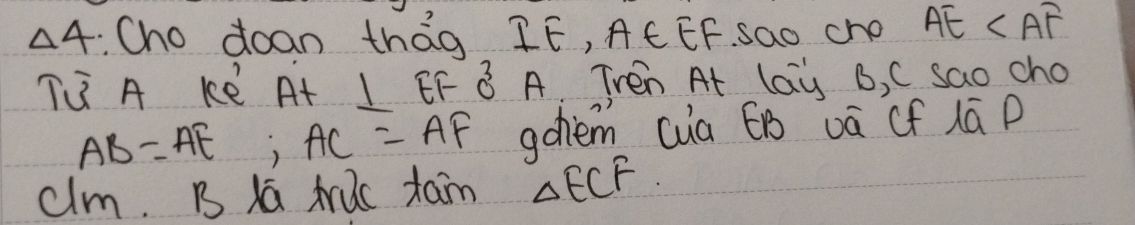 Δ4: Cho đoạn thẳng IF, A ∈ EF. sao cho AE < AF
Từ A kẻ At ⊥ EF ở A. Trên At lấy B, C sao cho
AB = AE ; AC = AF gđiểm của EB và CF là D
Cm. B là trực tâm ΔECF.